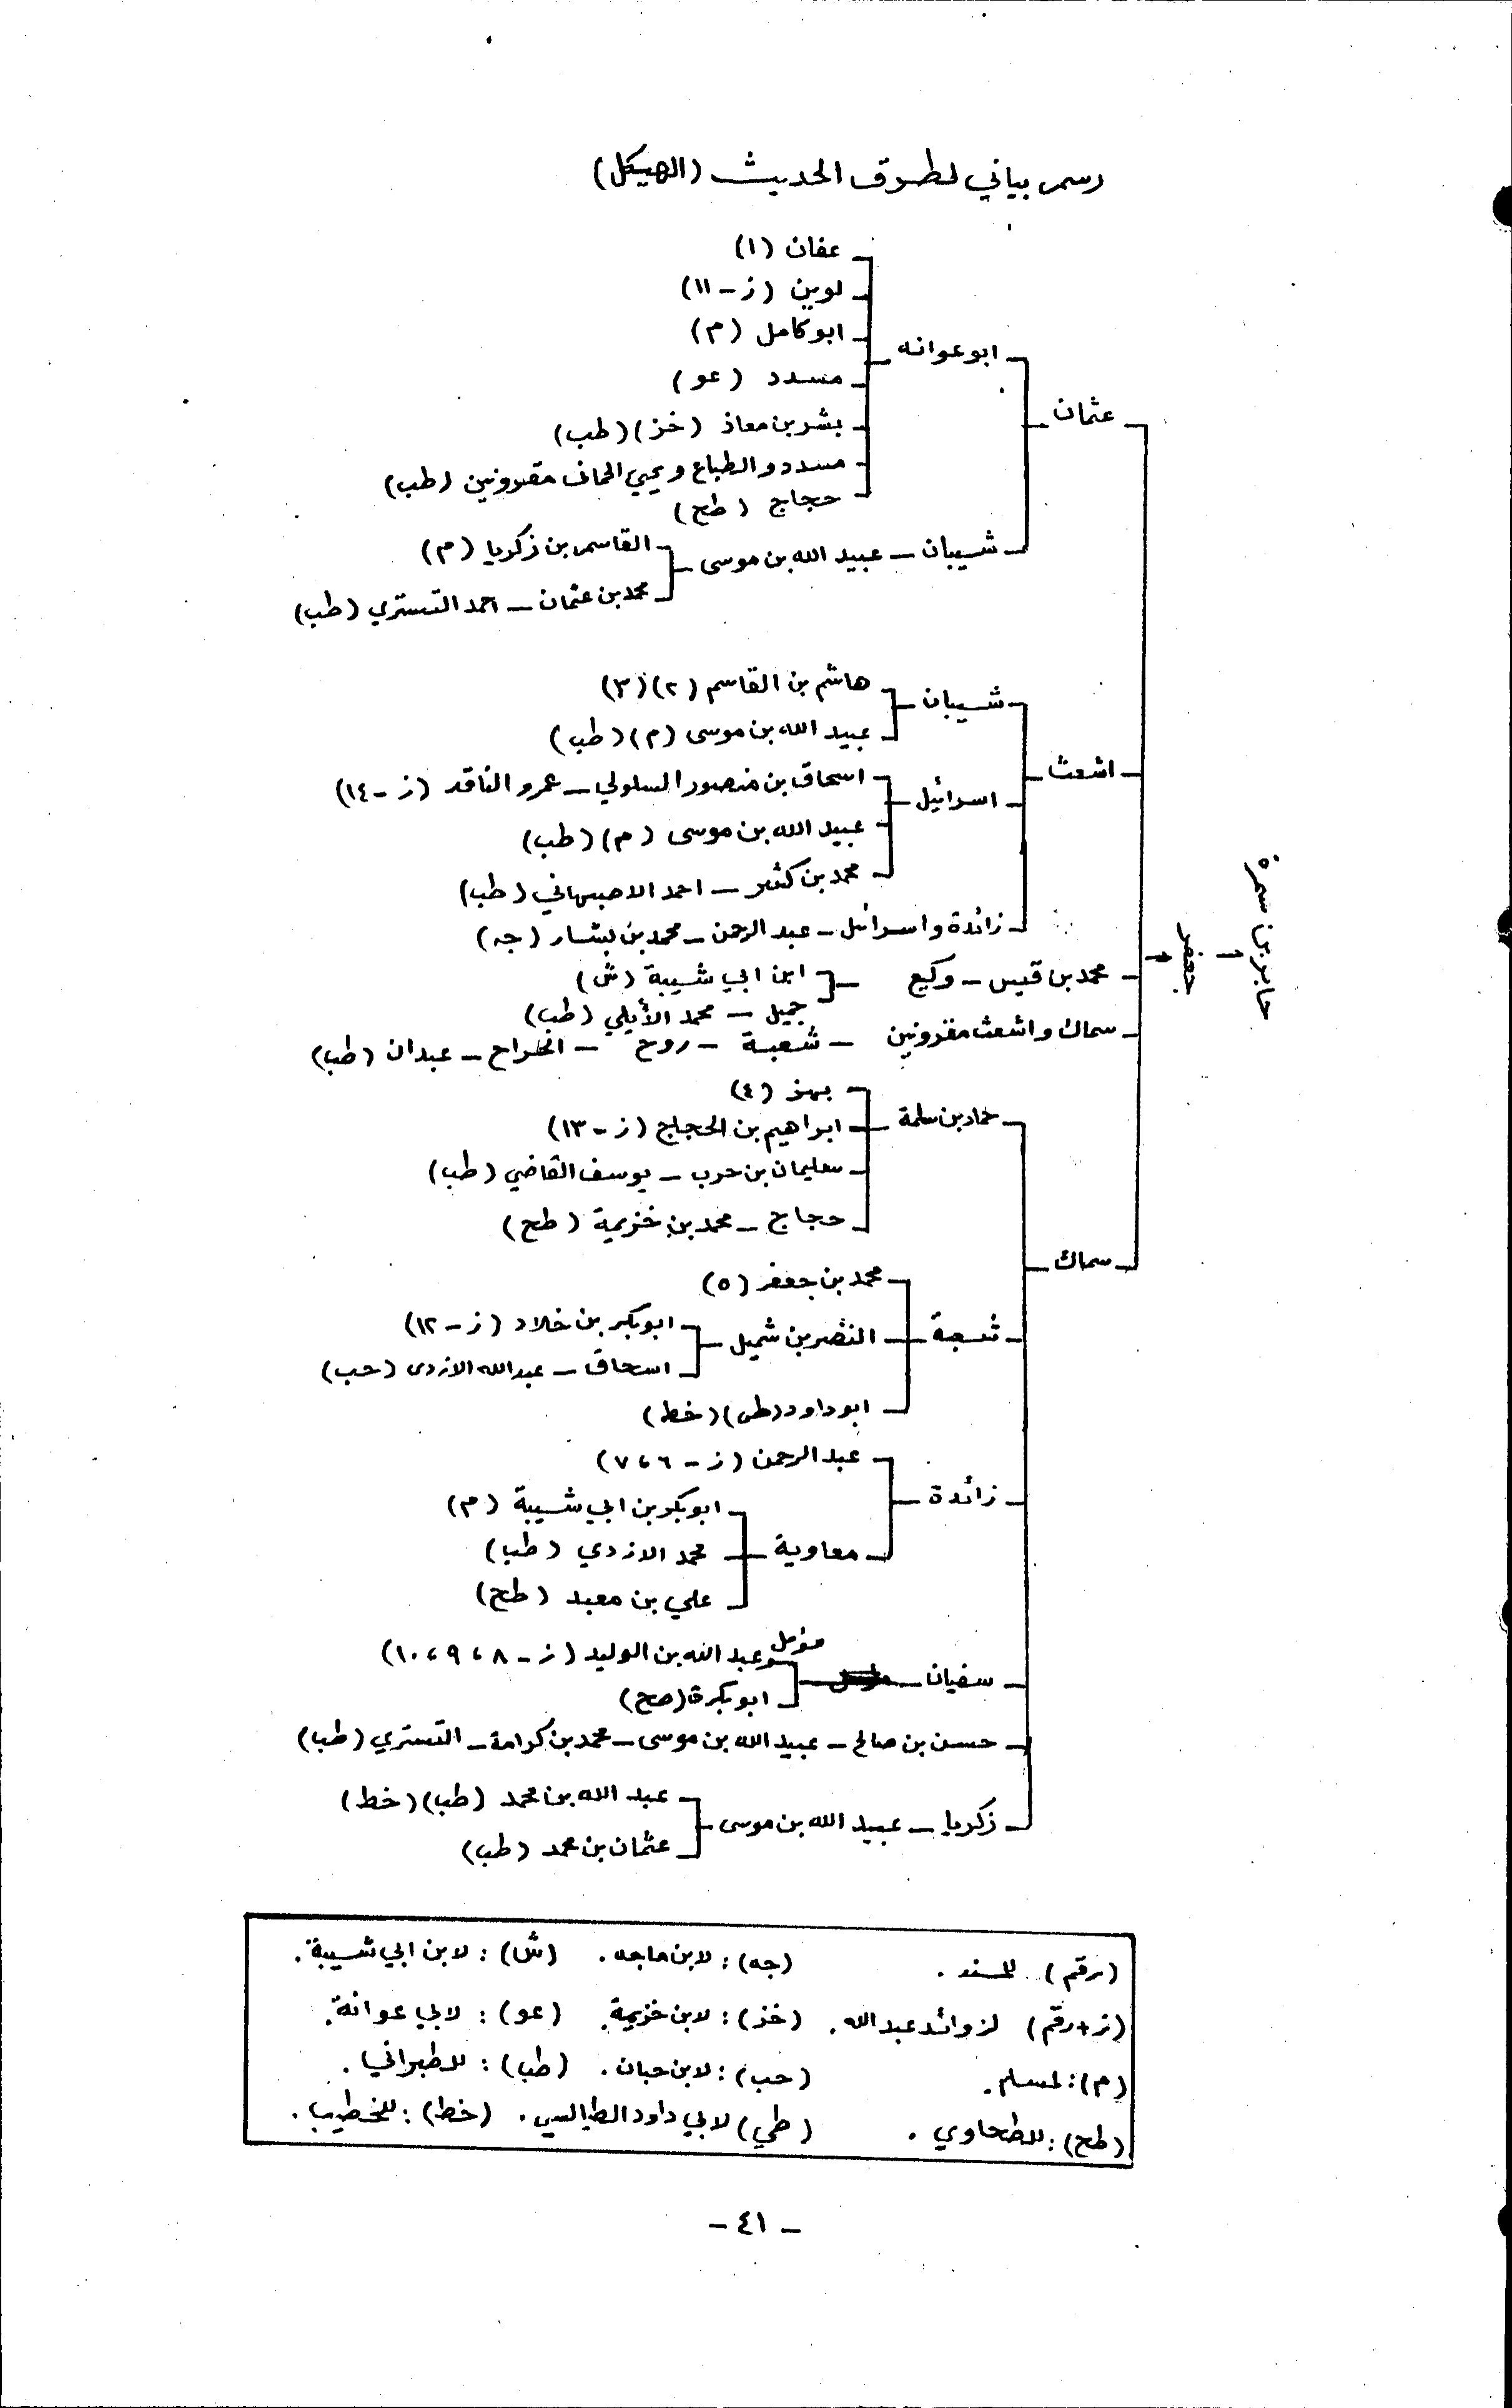 رسم بياني لطرق الحديث (الهيكل)
جابر بن سمرة
جعفر
عثمان
ابو عوانه
عفان (١)
لوين (ز - ١١)
ابو كامل (م)
مسدد (عو)
بشر بن معاذ (خز) (طب)
مسدد والطباع ويحيى الحماني مقرونين (طب)
حجاج (طح)
شيبان - عبيد الله بن موسى
القاسم بن زكريا (م)
محمد بن عثمان - احمد التستري (طب)
اشعث
شيبان
هاشم بن القاسم (٢) (٣)
عبيد الله بن موسى (م) (طب)
اسرائيل
اسحاق بن منصور السلولي - عمرو الناقد (ز - ١٤)
عبيد الله بن موسى (م) (طب)
محمد بن كثير - احمد الاصبهاني (طب)
زائدة واسرائيل - عبد الرحمن - محمد بن بشار (جه)
محمد بن قيس - وكيع
ابن ابي شيبة (ش)
جميل - محمد الأيلي (طب)
سماك واشعث مقرونين - شعبة - روح - الجراح - عبدان (طب)
سماك
حماد بن سلمة
بهز (٤)
ابراهيم بن الحجاج (ز - ١٣)
سليمان بن حرب - يوسف القاضي (طب)
حجاج - محمد بن خزيمة (طح)
شعبة
محمد بن جعفر (٥)
النضر بن شميل
ابو بكر بن خلاد (ز - ١٢)
اسحاق - عبد الله الازدي (حب)
ابو داود (طي) (خط)
زائدة
عبد الرحمن (ز - ٦، ٧)
معاوية
ابو بكر بن ابي شيبة (م)
محمد الازدي (طب)
علي بن معبد (طح)
سفيان
مؤمل وعبد الله بن الوليد (ز - ٨، ٩، ١٠)
ابو بكرة (طح)
حسن بن صالح - عبيد الله بن موسى - محمد بن كرامة - التستري (طب)
زكريا - عبيد الله بن موسى
عبد الله بن محمد (طب) (خط)
عثمان بن محمد (طب)
(رقم) للمسند . (جه) : لابن ماجه . (ش) : لابن ابي شيبة .
(ز+رقم) لزوائد عبد الله . (خز) : لابن خزيمة . (عو) : لابي عوانة .
(م) : لمسلم . (حب) : لابن حبان . (طب) : للطبراني .
(طح) : للطحاوي . (طي) لابي داود الطيالسي . (خط) : للخطيب .
- ٤١ -